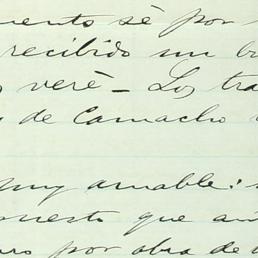 mento sé por
recibido un
verè — Los tra
y de Camacho
muy amable:
uesto que aún
por obra de